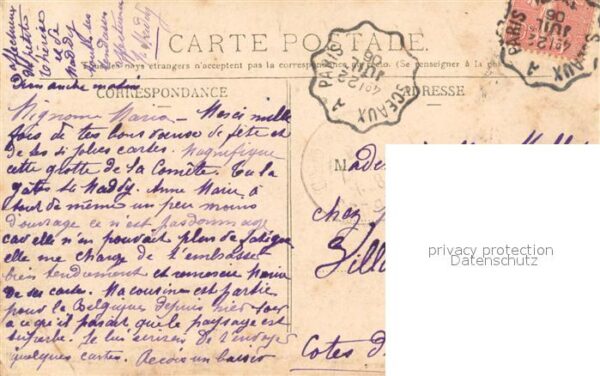 CARTE POSTALE.
Tous les pays étrangers n'acceptent pas la correspondance au recto. (Se renseigner à la poste)
CORRESPONDANCE
ADRESSE
Dimanche matin
Mignonne Maria — Merci mille
fois de tes bons vœux de fête et
de tes si jolies cartes. Magnifique
cette grotte de la Comète. Tu la
gâtes ta Maddy. Anne Marie a
tout de même un peu moins
d'ouvrage ce n'est pas dommage
car elle n'en pouvait plus de fatigue
elle me charge de t'embrasser
très tendrement et remercie Maria
de ses cartes. Ma cousine est partie
pour la Belgique depuis hier soir
a ce qu'il parait que le paysage est
superbe. Je lui écrirai de t'envoyer
quelques cartes. Reçois un baiser
PARIS
46 122
JUIL
06
PARIS A SCEAUX
46 122
JUIL
06
SCEAUX
Made
chez
Cotes d
privacy protection
Datenschutz